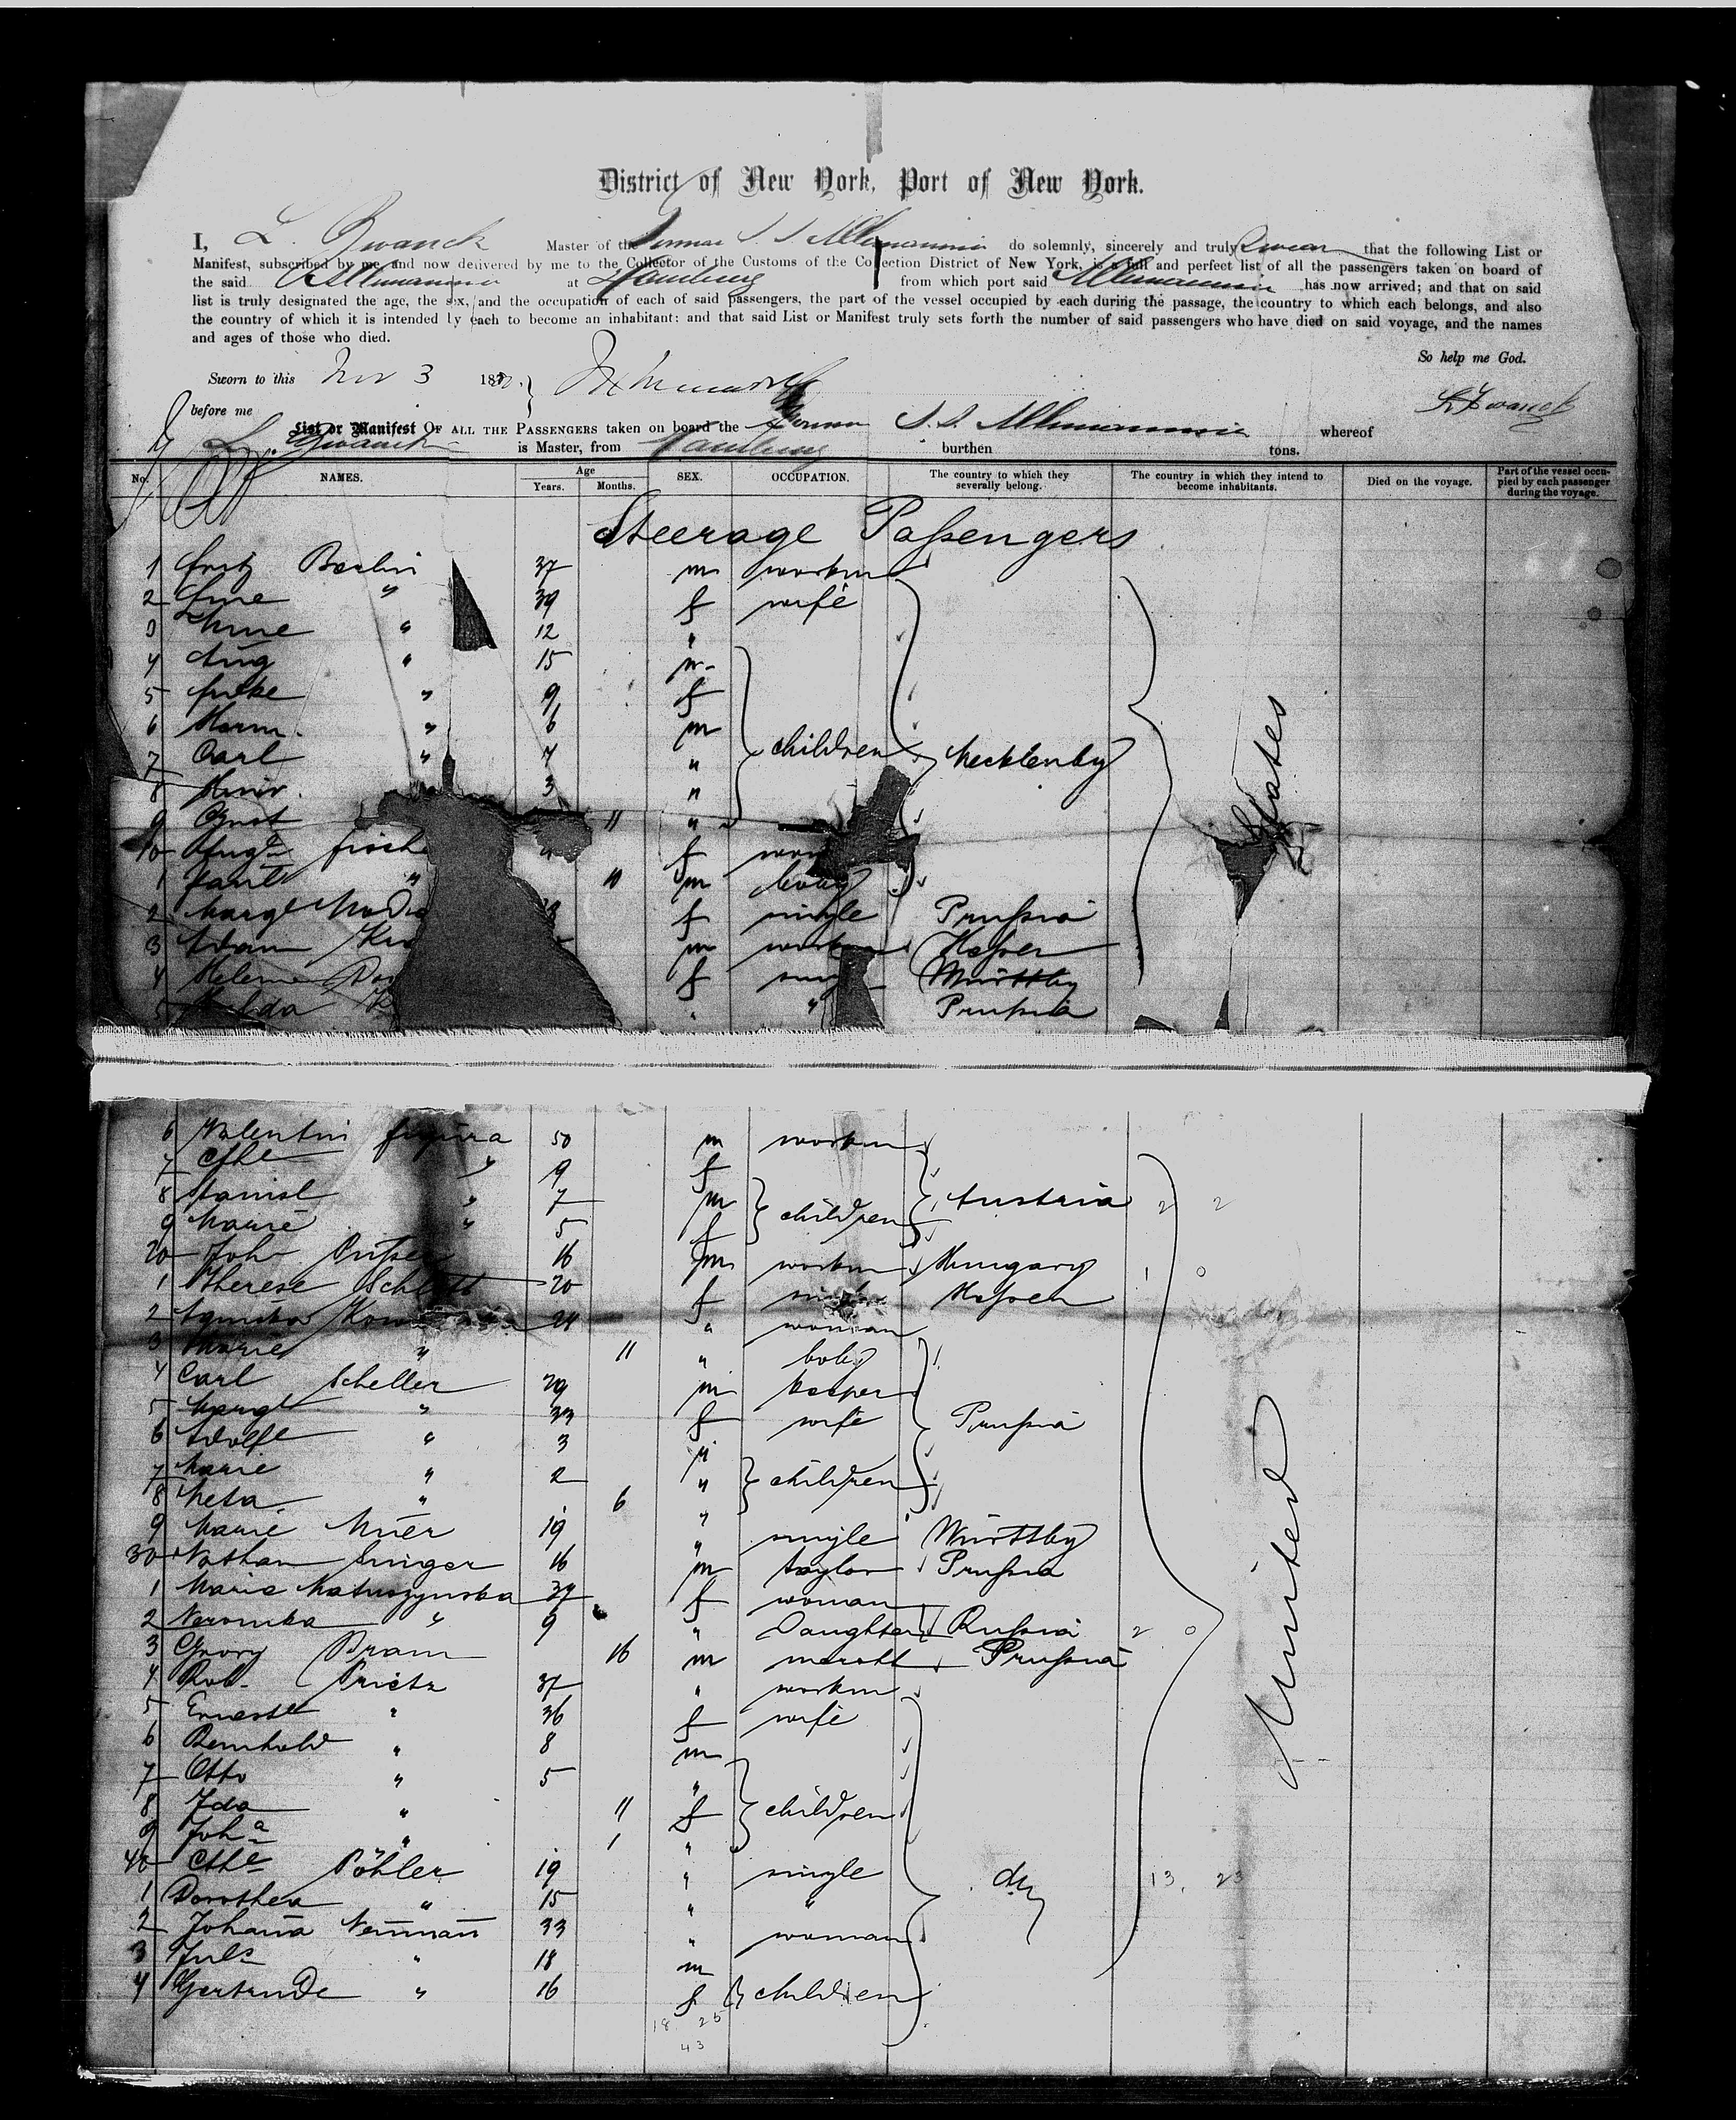 District of New York, Port of New York.
I, L. Master of the German S. S. Allemannia do solemnly, sincerely and truly swear that the following List or
Manifest, subscribed by me, and now delivered by me to the Collector of the Customs of the Collection District of New York, is a full and perfect list of all the passengers taken on board of
the said Allemannia at Hamburg from which port said Allemannia has now arrived; and that on said
list is truly designated the age, the sex, and the occupation of each of said passengers, the part of the vessel occupied by each during the passage, the country to which each belongs, and also
the country of which it is intended by each to become an inhabitant: and that said List or Manifest truly sets forth the number of said passengers who have died on said voyage, and the names
and ages of those who died.
So help me God.
Sworn to this Nov 3 18
before me
List or Manifest OF ALL THE PASSENGERS taken on board the German S. S. Allemannia whereof
L. is Master, from Hamburg burthen tons.
No. NAMES. Age Years. Months. SEX. OCCUPATION. The country to which they severally belong. The country in which they intend to become inhabitants. Died on the voyage. Part of the vessel occupied by each passenger during the voyage.
Steerage Passengers
1 Fritz Berlin 37 m workm
2 " 39 f wife
3 " 12 "
4 Aug " 15 m
5 " 9 f
6 Herm. " 6 m
7 Carl " 7 " children Mecklenbg
8 Heinr. 3 "
9 Gust 11 "
10 f
1 " 11 m baby
2 Margt f single Prussia
3 Adam m workm Hessen
4 Helene f Württbg
5 " " Prussia
6 Valentin Figura 50 m workm
7 " 9 f
8 Stanisl " 7 m children Austria 2 2
9 Marie " 5 f
20 Joh 16 m workm Hungary 1 0
1 Therese 20 f Hessen
2 24 " woman
3 Marie " 11 " baby
4 Carl Scheller 29 m
5 Margt " 33 f wife Prussia
6 Adolf " 3 m
7 Marie " 2 " children
8 Meta " 6 "
9 Marie 19 " single Württbg
30 Nathan Singer 16 m taylor Prussia
1 Maria Matuszynska 37 f woman
2 Veronika " 9 " Daughter Russia 2 0
3 Georg Bram 16 m Prussia
4 Rob. Prietz 37 " workm
5 " 36 f wife
6 Reinhold " 8 m
7 Otto " 5 "
8 Ida " 11 f children
9 Joha " 1 "
40 Cthe Pöhler 19 " single
1 Dorothea " 15 " "
2 Johana Neumann 33 " woman
3 Juls " 18 m
4 Gertrude " 16 f children
do
13. 23
United States
18 25
43